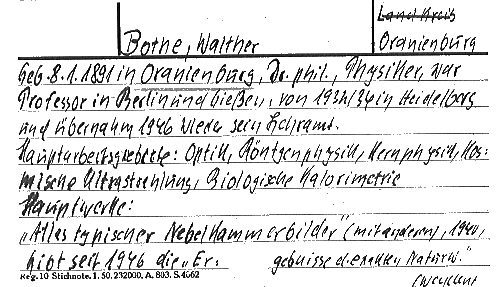 Land Kreis
Bothe, Walther
Oranienburg
Geb. 8.1.1891 in Oranienburg, Dr. phil., Physiker, war
Professor in Berlin und Gießen, von 1932/34 in Heidelberg
und übernahm 1946 wieder sein Lehramt.
Hauptarbeitsgebiete: Optik, Röntgenphysik, Kernphysik, Kos-
mische Ultrastrahlung, Biologische Kalorimetrie
Hauptwerke:
„Atlas typischer Nebelkammerbilder" (mit anderen), 1940,
gibt seit 1946 die „Er-
gebnisse d. exakten Naturw."
Reg. 10 Stichnote. 1. 50. 232000. A. 803. S. 4662